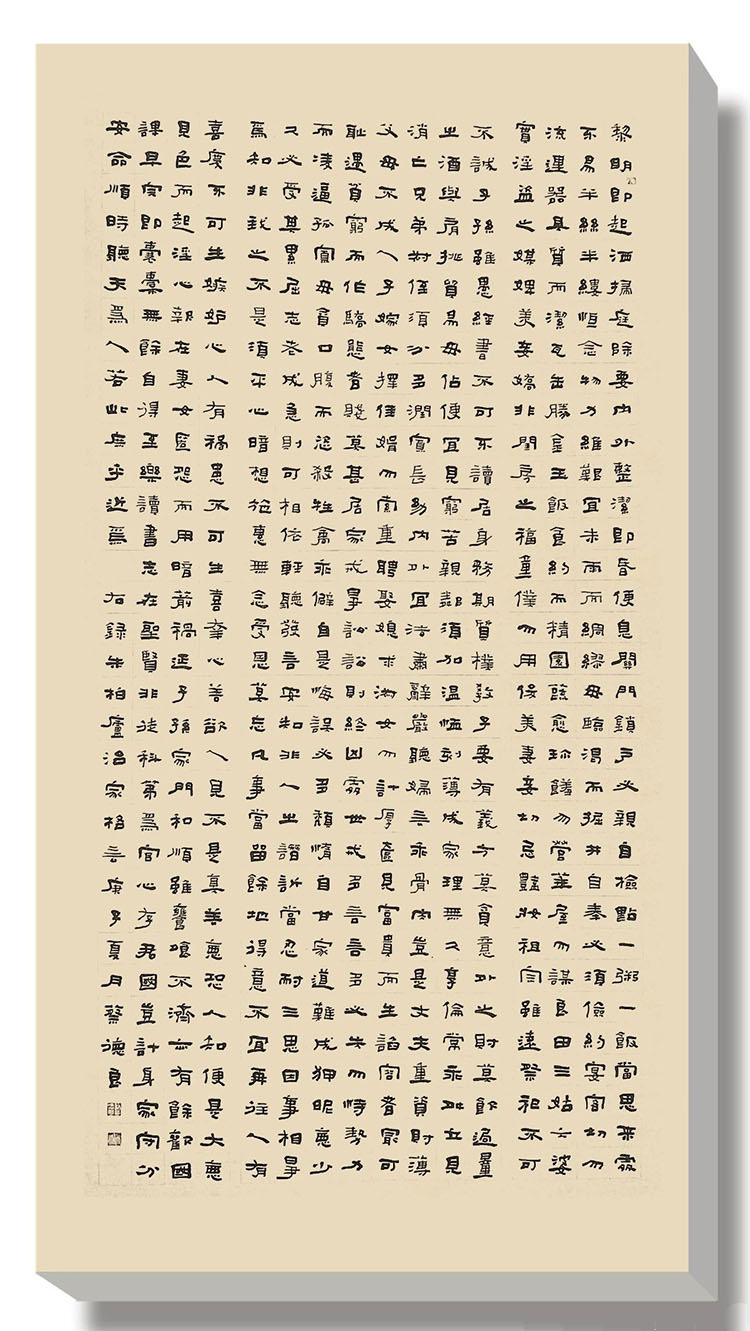 黎明即起洒掃庭除要內外整潔即昏便息關門鎖戶必親自檢點一粥一飯當思來處
不易半絲半縷恒念物力維艱宜未雨而綢繆毋臨渴而掘井自奉必須儉約宴客切勿
流連器具質而潔瓦缶勝金玉飯食約而精園蔬愈珍饈勿營華屋勿謀良田三姑六婆
實淫盜之媒婢美妾嬌非閨房之福童僕勿用俊美妻妾切忌豔妝祖宗雖遠祭祀不可
不誠子孫雖愚經書不可不讀居身務期質樸教子要有義方莫貪意外之財莫飲過量
之酒與肩挑貿易毋佔便宜見窮苦親鄰須加溫恤刻薄成家理無久享倫常乖舛立見
消亡兄弟叔侄須分多潤寡長幼內外宜法肅辭嚴聽婦言乖骨肉豈是丈夫重資財薄
父母不成人子嫁女擇佳婿勿索重聘娶媳求淑女勿計厚奩見富貴而生諂容者最可
恥遇貧窮而作驕態者賤莫甚居家戒爭訟訟則終凶處世戒多言言多必失勿恃勢力
而凌逼孤寡毋貪口腹而恣殺牲禽乖僻自是悔誤必多頹惰自甘家道難成狎昵惡少
久必受其累屈志老成急則可相依輕聽發言安知非人之譖訴當忍耐三思因事相爭
焉知非我之不是須平心暗想施惠無念受恩莫忘凡事當留餘地得意不宜再往人有
喜慶不可生嫉妒心人有禍患不可生喜幸心善欲人見不是真善惡恐人知便是大惡
見色而起淫心報在妻女匿怨而用暗箭禍延子孫家門和順雖饔飧不濟亦有餘歡國
課早完即囊橐無餘自得至樂讀書志在聖賢非徒科第為官心存君國豈計身家守分
安命順時聽天為人若此庶乎近焉 右錄朱柏廬治家格言庚子夏月蔡德良